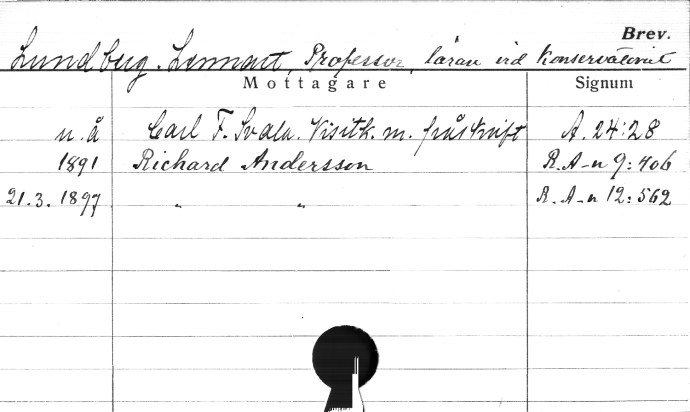 Brev.
Lundberg. Lennart, Professor, läran vid Konservatoriet
Mottagare Signum
n.å Carl F. Svala. Visitk. m. påskrift A. 24:28
1891 Richard Andersson R. A-n 9:406
21.3.1897 " " R. A-n 12:562